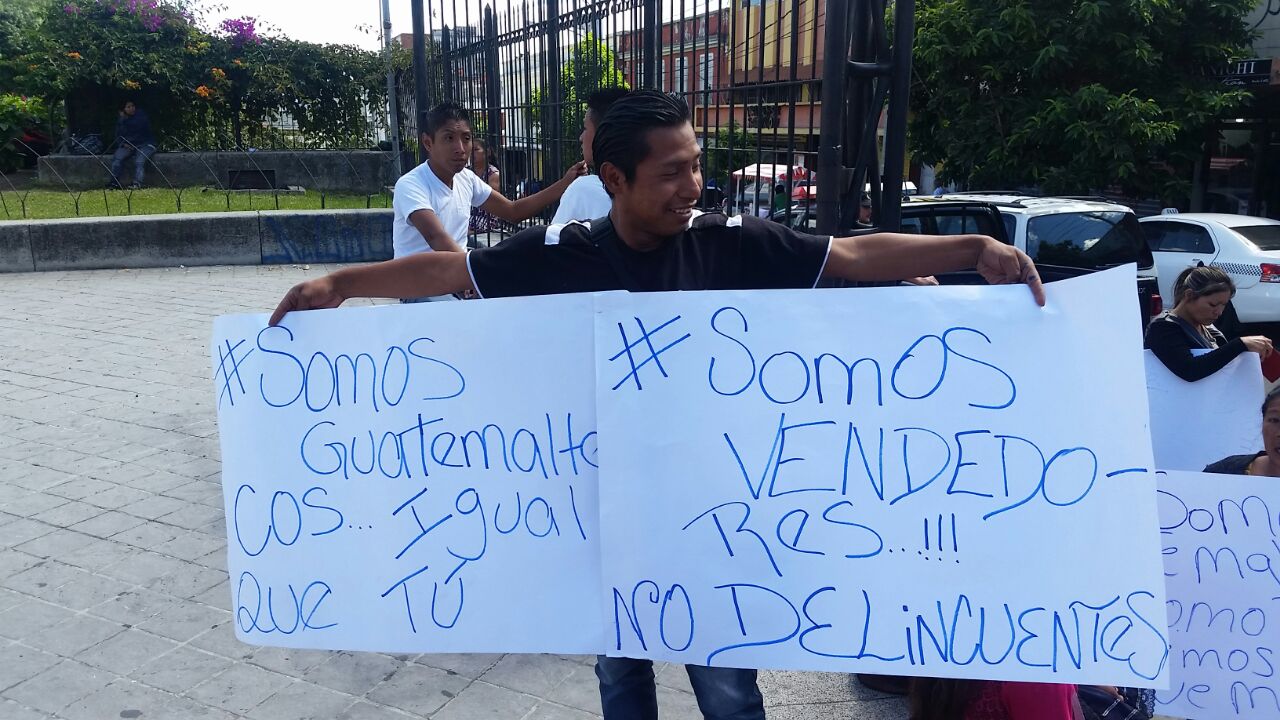 #Somos
Guatemalte
cos... Igual
que Tú
#Somos
VENDEDO-
Res...!!!
NO DELINCUENTES
Somo